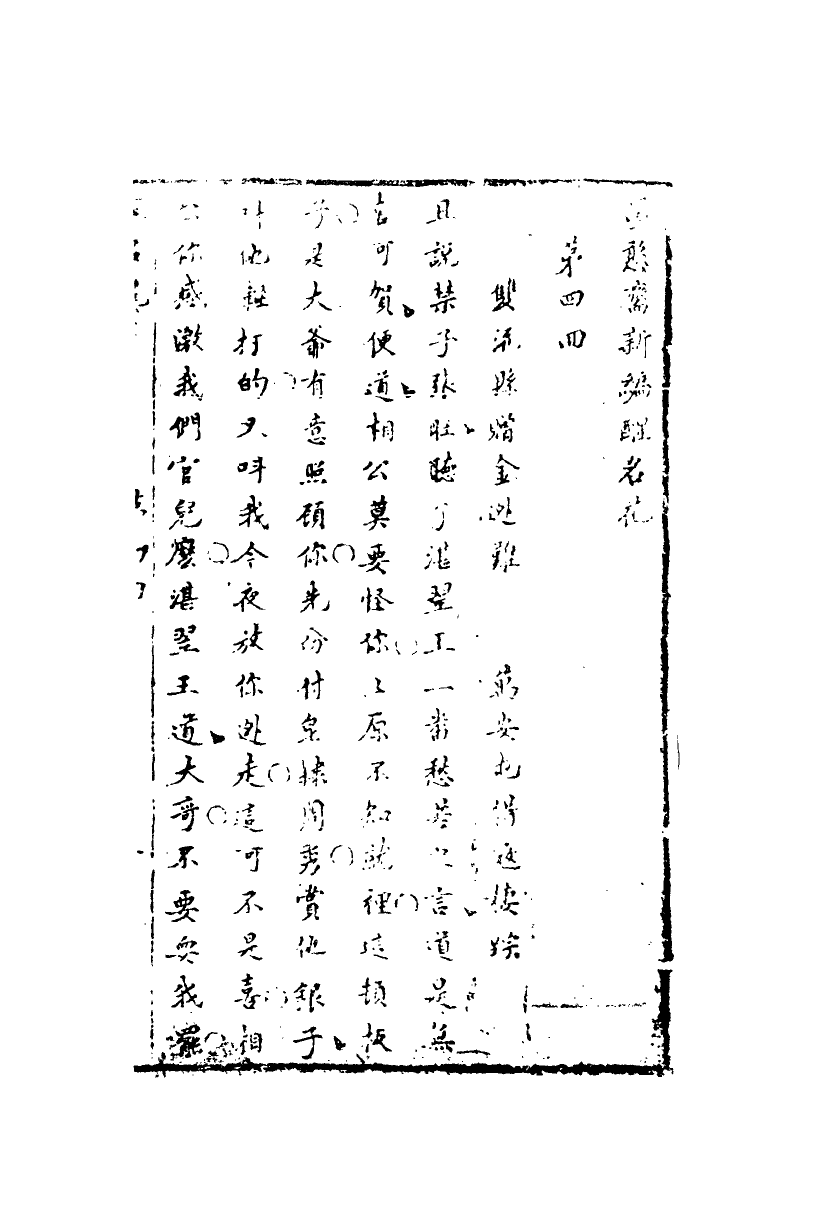 憨齋新編醒名花
第四回
雙流縣贈金逃難　　安
且說禁子張旺聽了湛翌王一番愁苦之言道是無
言可賀便道相公莫要怪你〻原不知就裡這頓板
子是大爺有意照顧你先分付皂隸周秀賞他銀子
叫他輕打的又叫我今夜放你逃走這可不是喜相
公你感激我們官兒麼湛翌王道大哥不要耍我罷